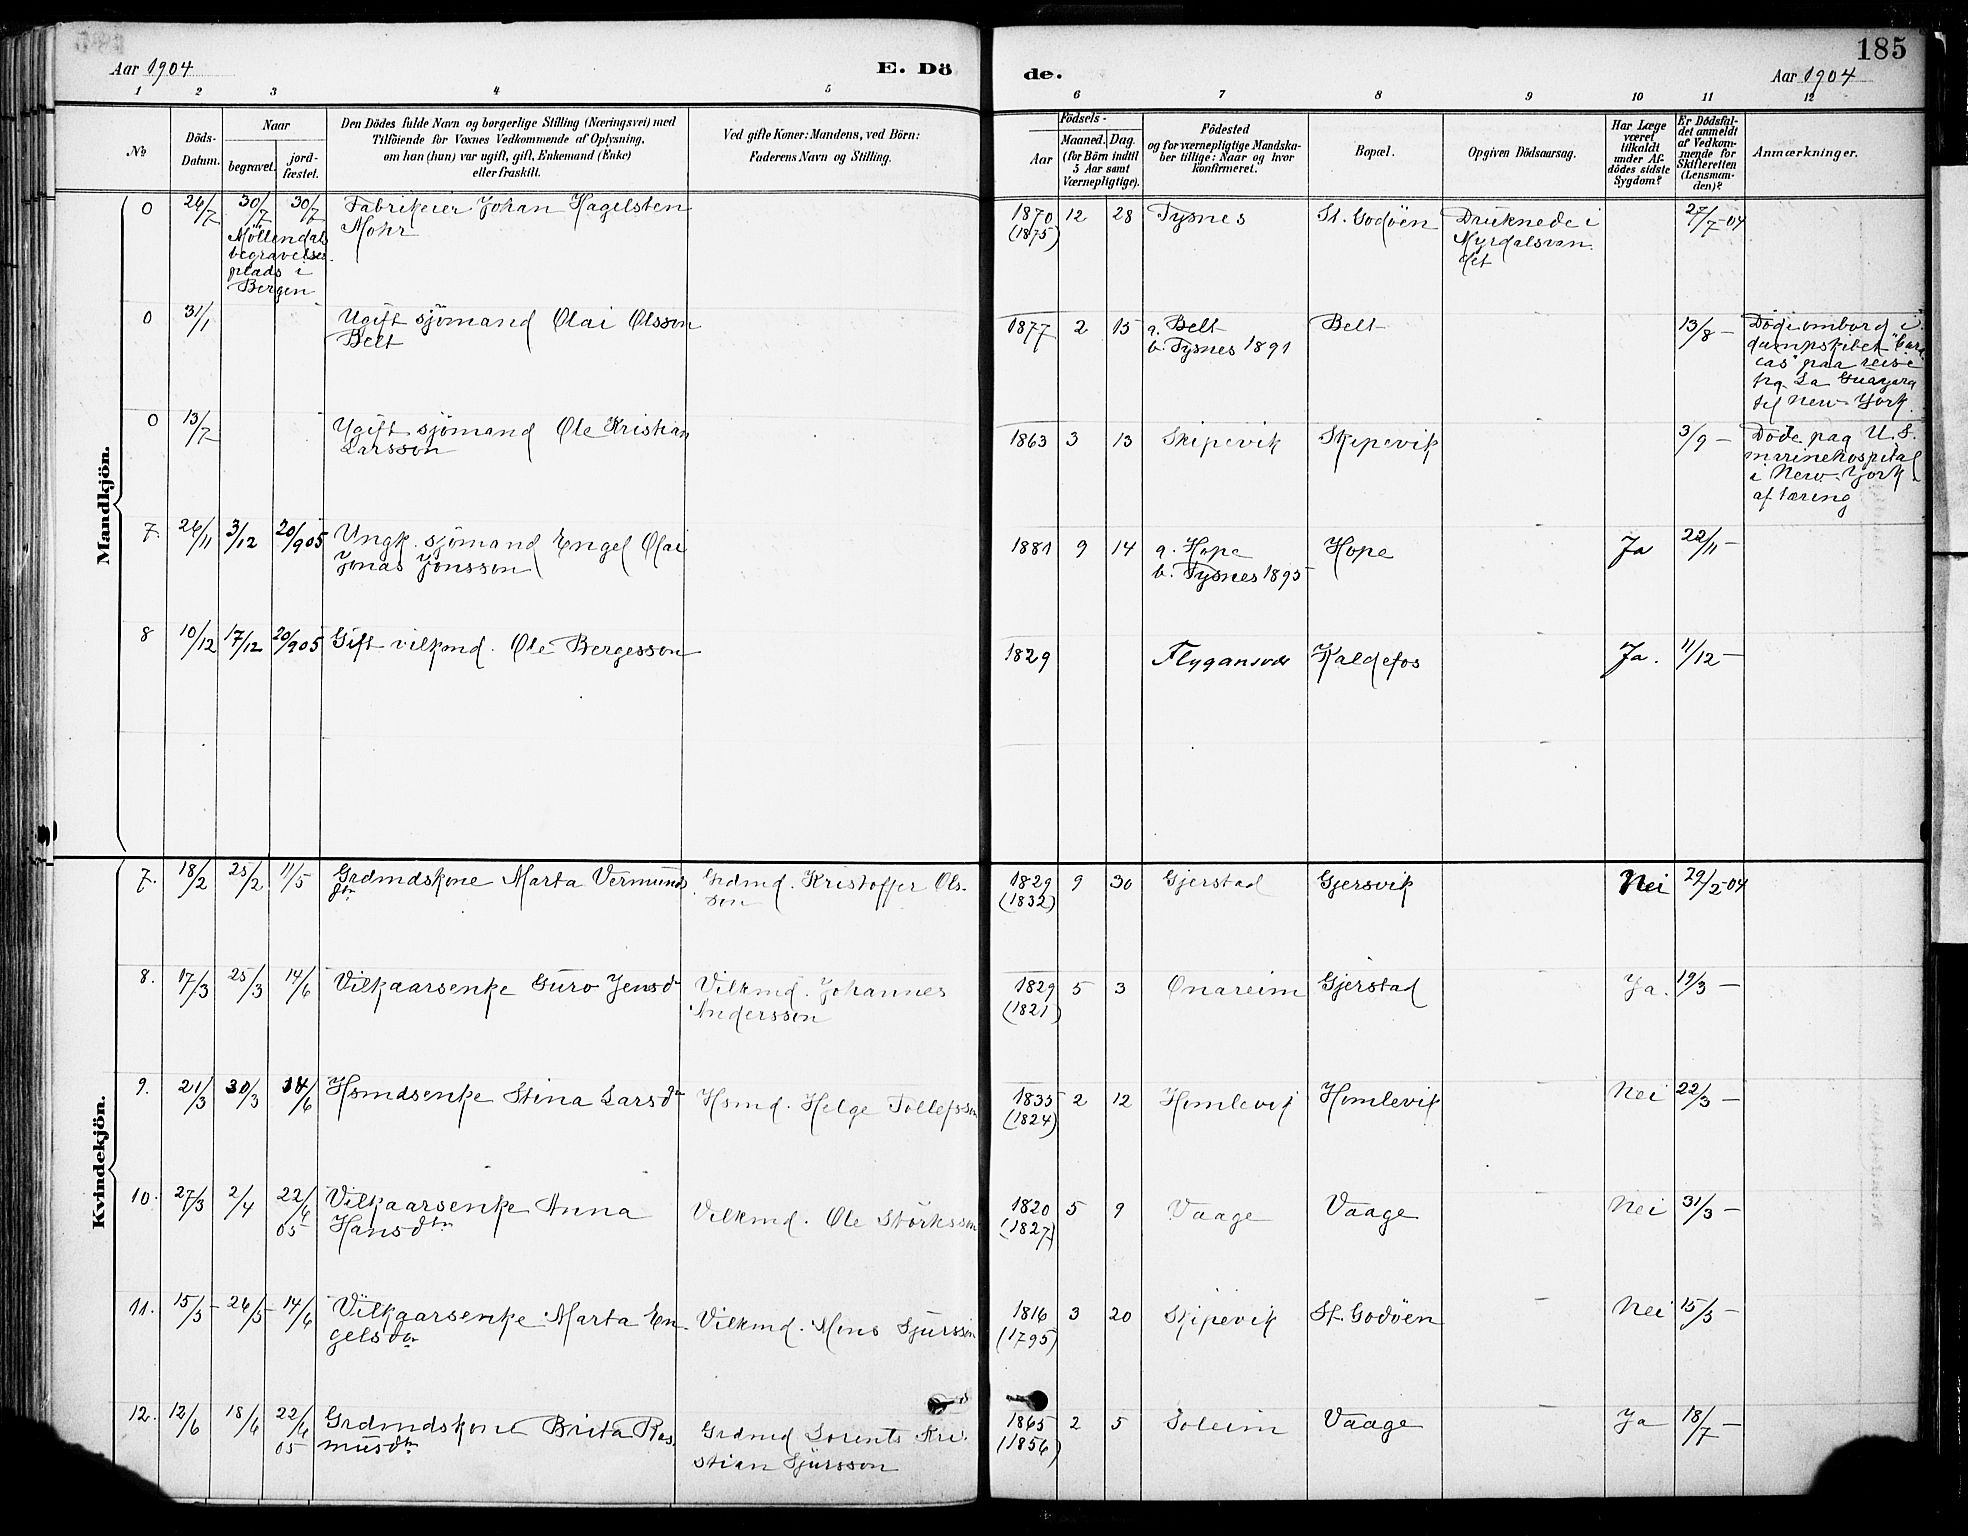 185
Aar 1904
E. Dö
de.
Aar 1904
1 2 3 4 5 6 7 8 9 10 11 12
No
Döds-
Datum.
Naar
begravet.
jord-
fæstet.
Den Dödes fulde Navn og borgerlige Stilling (Næringsvei) med
Tilföiende for Voxnes Vedkommende af Oplysning,
om han (hun) var ugift, gift, Enkemand (Enke)
eller fraskilt.
Ved gifte Koner: Mandens, ved Börn:
Faderens Navn og Stilling.
Födsels-
Aar
Maaned. Dag.
(for Börn indtil
5 Aar samt
Værnepligtige).
Födested
og for værnepligtige Mandska-
ber tillige: Naar og hvor
konfirmeret.
Bopæl.
Opgiven Dödsaarsag.
Har Læge
været
tilkaldt
under Af-
dödes sidste
Sygdom?
Er Dödsfal-
det anmeldt
af Vedkom-
mende for
Skifteretten
(Lensman-
den)?
Anmærkninger.
Mandkjön.
0 26/7 30/7 30/7 Fabrikeier Johan Hagelsten 1870 12 28 Tysnes St. Godöen Druknede i 27/7-04
Möllendals Mohr (1875) Myrdalsvan
begravelses det
plads i
Bergen
0 31/1 Ugift sjömand Olai Olsson 1877 2 15 a. Belt Belt 13/8 - Döde ombord i
Belt b. Tysnes 1891 dampskibet "Cara
cas" paa reise
fra La Guayara
til New York.
0 13/7 Ugift sjömand Ole Kristian 1863 3 13 Skipevik Skipevik 3/9 - Döde paa U.S.
Larsson marinehospital
i New-York
af tæring
7. 26/11 3/12 20/9 05 Ungk. sjömand Engel Olai 1881 9 14 a. Hope Hope Ja 22/11 -
Jonas Jonsson b. Tysnes 1895
8 10/12 17/12 20/9 05 Gift vilkmd. Ole Bergesson 1829 Flygansvær Kaldefos Ja. 11/12 -
Kvindekjön.
7. 18/2 25/2 11/5 Grdmdskone Marta Vermunds Grdmd. Kristoffer Ols- 1829 9 30 Gjerstad Gjersvik Nei 29/2-04
dtr son (1832)
8. 17/3 25/3 14/6 Vilkaarsenke Guro Jensdr Vilkmd. Johannes 1829 5 3 Onareim Gjerstad Ja. 19/3 -
Andersson (1821)
9. 21/3 30/3 14/6 Hsmdsenke Stina Larsdr Hsmd. Helge Tollefsson 1835 2 12 Homlevik Homlevik Nei 22/3 -
(1824)
10. 27/3 2/4 22/6 Vilkaarsenke Anna Vilkmd. Ole Störksson 1820 5 9 Vaage Vaage Nei 31/3 -
05 Hansdtr (1827)
11. 15/5 26/5 14/6 Vilkaarsenke Marta En- Vilkmd. Mons Sjursson 1816 3 20 Skipevik St. Godöen Nei 15/5 -
gelsdtr (1795)
12. 12/6 18/6 22/6 Grdmdskone Brita Ras- Grdmd Lorents Kri- 1865 2 5 Soleim Vaage Ja 18/7 -
05 musdtr stian Sjursson (1856)